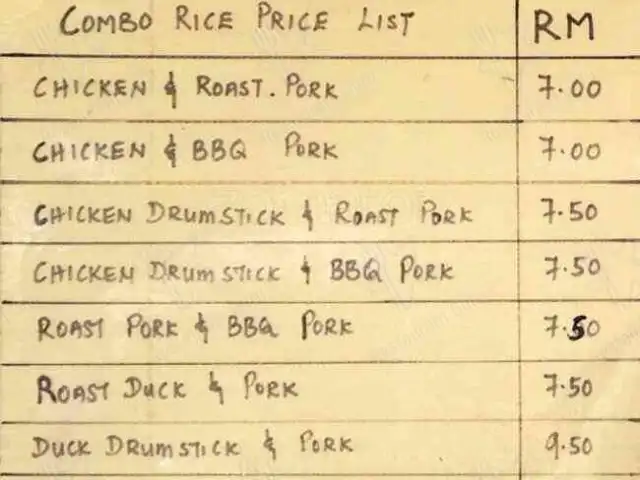 COMBO RICE PRICE LIST RM
CHICKEN & ROAST. PORK 7.00
CHICKEN & BBQ PORK 7.00
CHICKEN DRUMSTICK & ROAST PORK 7.50
CHICKEN DRUMSTICK & BBQ PORK 7.50
ROAST PORK & BBQ PORK 7.50
ROAST DUCK & PORK 7.50
DUCK DRUMSTICK & PORK 9.50